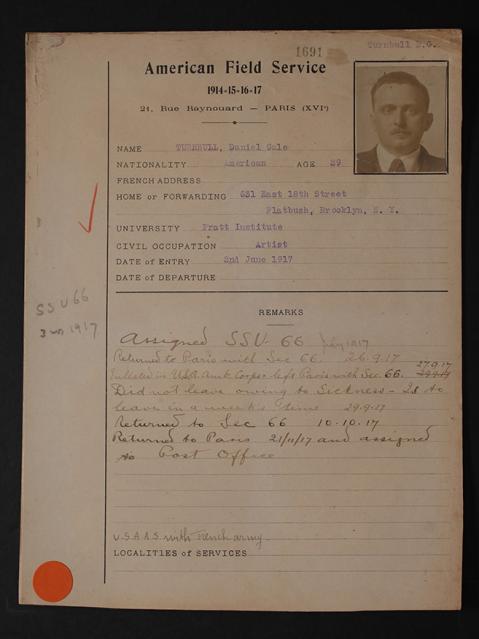 1691
Turnbull D.G.
American Field Service
1914-15-16-17
21, Rue Raynouard — PARIS (XVIe)
NAME TURNBULL, Daniel Gale
NATIONALITY American AGE 29
FRENCH ADDRESS
HOME or FORWARDING 531 East 18th Street
Flatbush, Brooklyn, N. Y.
UNIVERSITY Pratt Institute
CIVIL OCCUPATION Artist
DATE of ENTRY 2nd June 1917
DATE of DEPARTURE
REMARKS
SSU 66
1917
Assigned SSU- 66 July 1917
Returned to Paris with Sec 66. 26.9.17
27.9.17
Enlisted in U.S.A. Amb. Corps- left Paris with Sec 66.
Did not leave owing to Sickness - Is to
leave in a week's time 29-9-17
Returned to Sec 66 10-10.17
Returned to Paris 21/11/17 and assigned
to Post Office
U.S.A.A.S. with French army
LOCALITIES of SERVICES